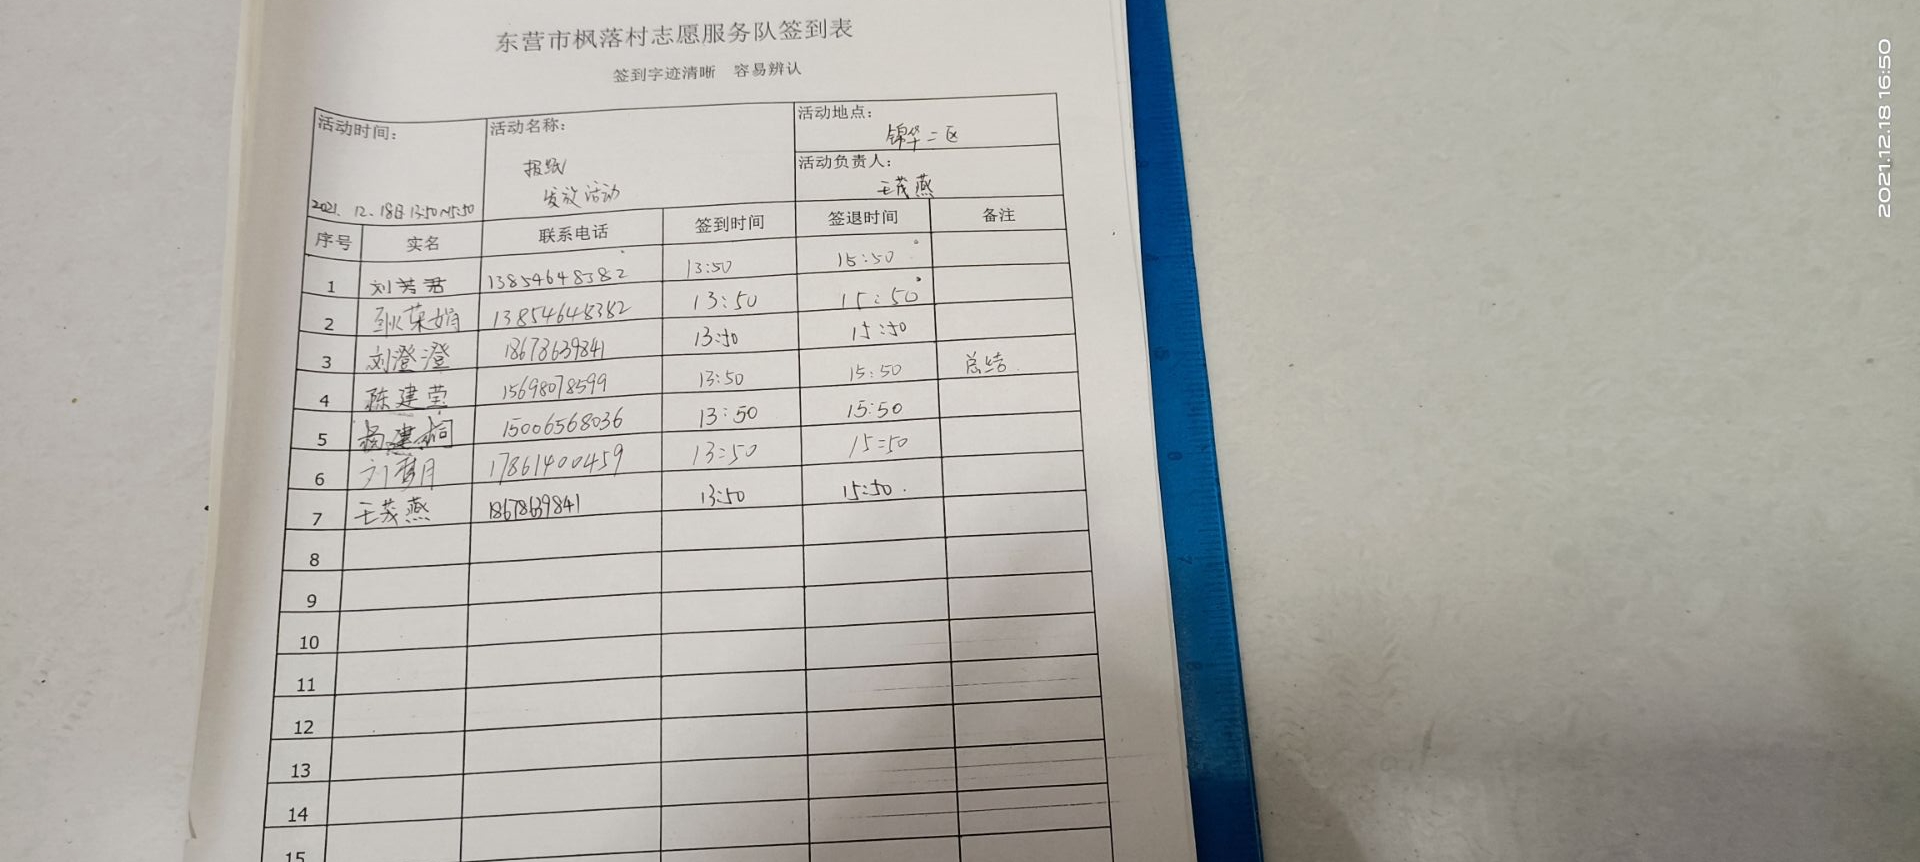 东营市枫落村志愿服务队签到表
签到字迹清晰 容易辨认
活动时间: 活动名称: 活动地点:
锦华二区
报纸 活动负责人:
发放活动 王茂燕
2021. 12. 18日 13:50~15:50
序号 实名 联系电话 签到时间 签退时间 备注
1 刘芳君 13854648382 13:50 15:50
2 荣娟 13854648382 13:50 15:50
3 刘澄澄 18678639841 13:50 15:50
4 陈建莹 15698078599 13:50 15:50 总结
5 杨建桐 15006568036 13:50 15:50
6 刘梦月 17861400459 13:50 15:50
7 王茂燕 18678639841 13:50 15:50.
8
9
10
11
12
13
14
15
2021.12.18 16:50